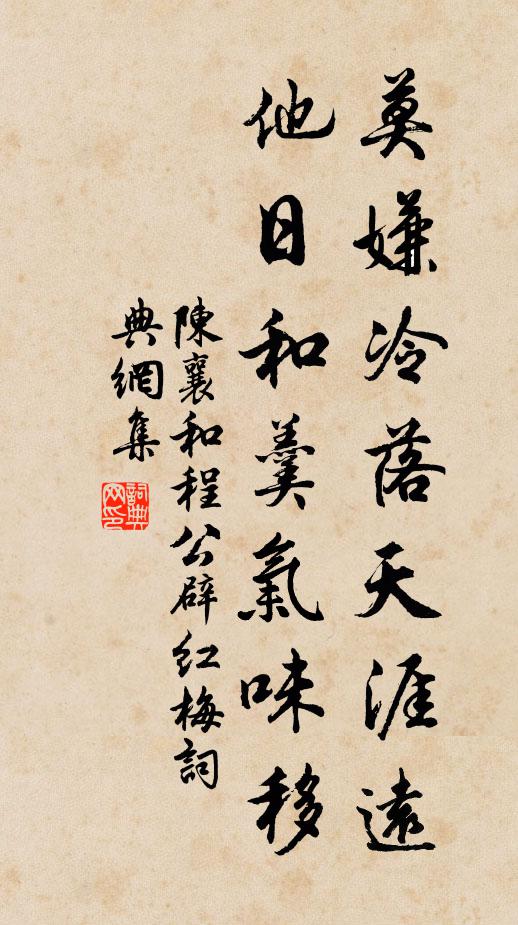 莫嫌冷落天涯遠
他日和羹氣味移
陳襄和程公辟红梅詞
典網集
詞典
网印